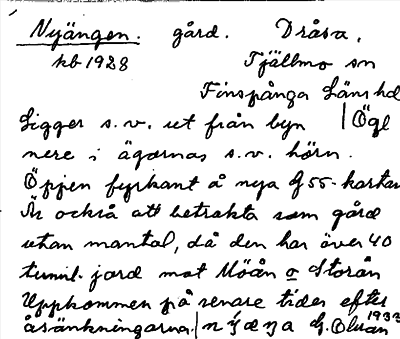 Nyängen. gård. Dråsa.
kb 1928 Tjällmo sn
Finspånga Länshd
Ligger s.v. ut från byn | Ögl
nere i ägornas s.v. hörn.
Öppen fyrkant å nya G 55-kartan
Är också att betrakta som gård
utan mantal, då den har över 40
tunnl. jord mot Möån o Storån
Uppkommen på senare tider efter
åsänkningarna. | nýæŋa G. Olsson 1933